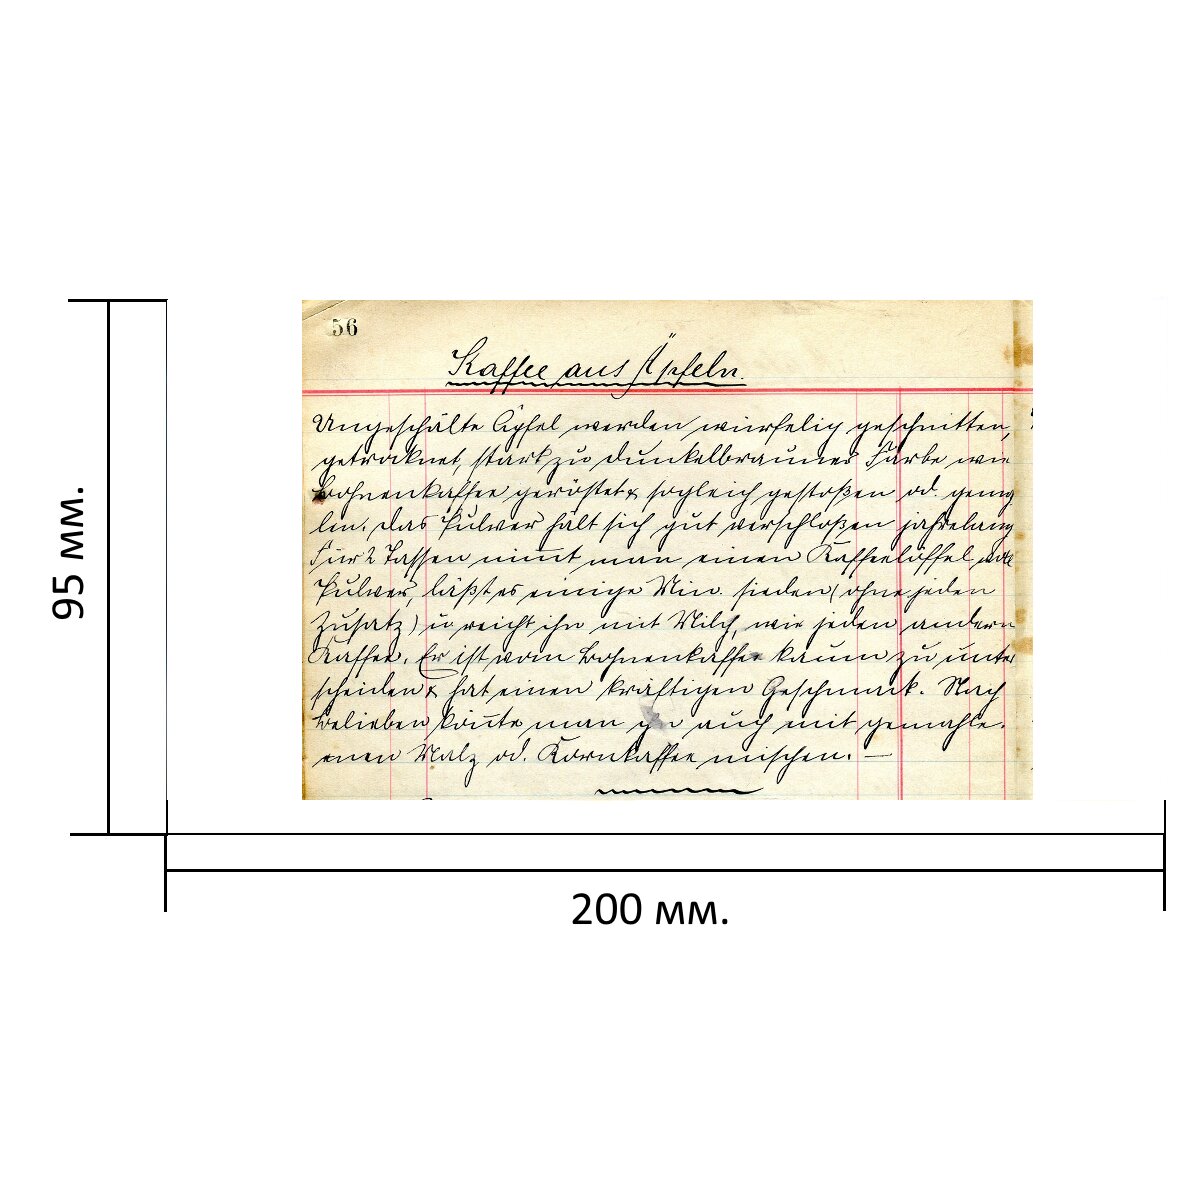 56
Kaffee aus Äpfeln.
Ungeschälte Äpfel werden würfelig geschnitten,
getrocknet, stark zu dunkelbrauner Farbe wie
Bohnenkaffee geröstet & sogleich gestoßen od. gemq
len. Das Pulver hält sich gut verschloßen jahrelang
Für 2 Tassen nim̅t man einen Kaffeelöffel voll
Pulver, läßt es einige Min. sieden (ohne jeden
Zusatz) u reicht ihn mit Milch, wie jeden andern
Kaffee. Er ist vom Bohnenkaffee kaum zu unter
scheiden & hat einen kräftigen Geschmack. Nach
Belieben kön̅te man ihn auch mit gemahle-
enen Malz od. Kornkaffee mischen. —
95 мм.
200 мм.